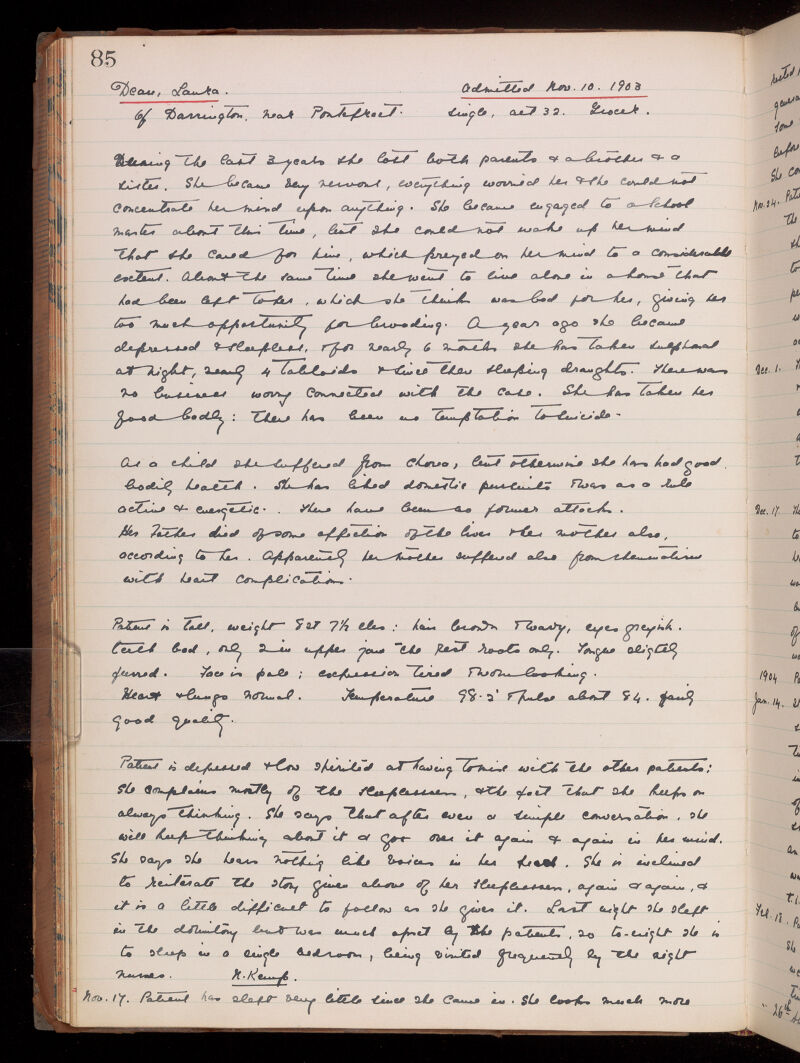 85
Dean, Laura. Admitted Nov. 10. 1903
of Darrington, near Pontefract. Single, aet 32. Grocer.
During the last 3 years she lost both parents & a brother & a
sister. She became very nervous, everything worried her & she could not
concentrate her mind upon anything. She became engaged to a school
master about this time, but she could not make up her mind
that she cared for him, which preyed on her mind to a considerable
extent. About the same time she went to live alone in a house that
had been left to her, which she thinks was bad for her, giving her
too much opportunity for brooding. A year ago she became
depressed & sleepless, & for nearly 6 months she has taken sulphonal
at night, nearly 4 tabloids & since then sleeping draughts. There was
no business worry connected with the case. She has taken her
food badly: there has been no temptation to suicide.
As a child she suffered from chorea, but otherwise she has had good
bodily health. She has liked domestic pursuits & was as a rule
active & energetic. There have been no former attacks.
Her Father died of some affection of the liver & her mother also,
according to her. Apparently her mother suffered also from rheumatism
with heart complications.
Patient is tall, weight 8 st 7½ lbs: hair brown & wavy, eyes greyish.
teeth bad, only 2 in upper jaw the rest roots only. Tongue slightly
furred. Face is pale; expression tired & worn looking.
Heart & lungs normal. Temperature 98.2° & pulse about 84. fairly
good quality.
Patient is depressed & low spirited at having to mix with the other patients:
She complains mostly of the sleeplessness, & the fact that she keeps on
always thinking. She says that after even a simple conversation, she
will keep thinking about it & goes over it again & again in her mind.
She says she hears nothing like voices in her head. She is inclined
to reiterate the story given above of her sleeplessness, again & again, &
it is a little difficult to follow as she gives it. Last night she slept
in the dormitory but was much upset by the patients, so to-night she is
to sleep in a single bedroom, being visited frequently by the night
nurses. N. Kemp.
Nov. 17. Patient has slept very little since she came in. She looks much more
Some
before
She
Nov. 24.
Dec. 1.
Dec. 17.
1904
Jan. 14.
Feb. 18.
" 26th